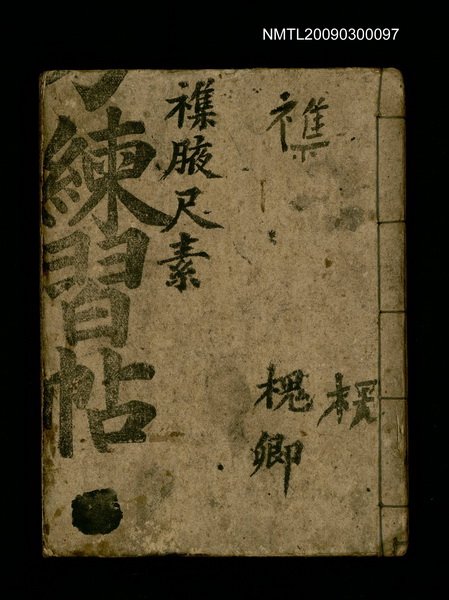 NMTL20090300097
襍
槐卿
襍腋尺素
練習帖